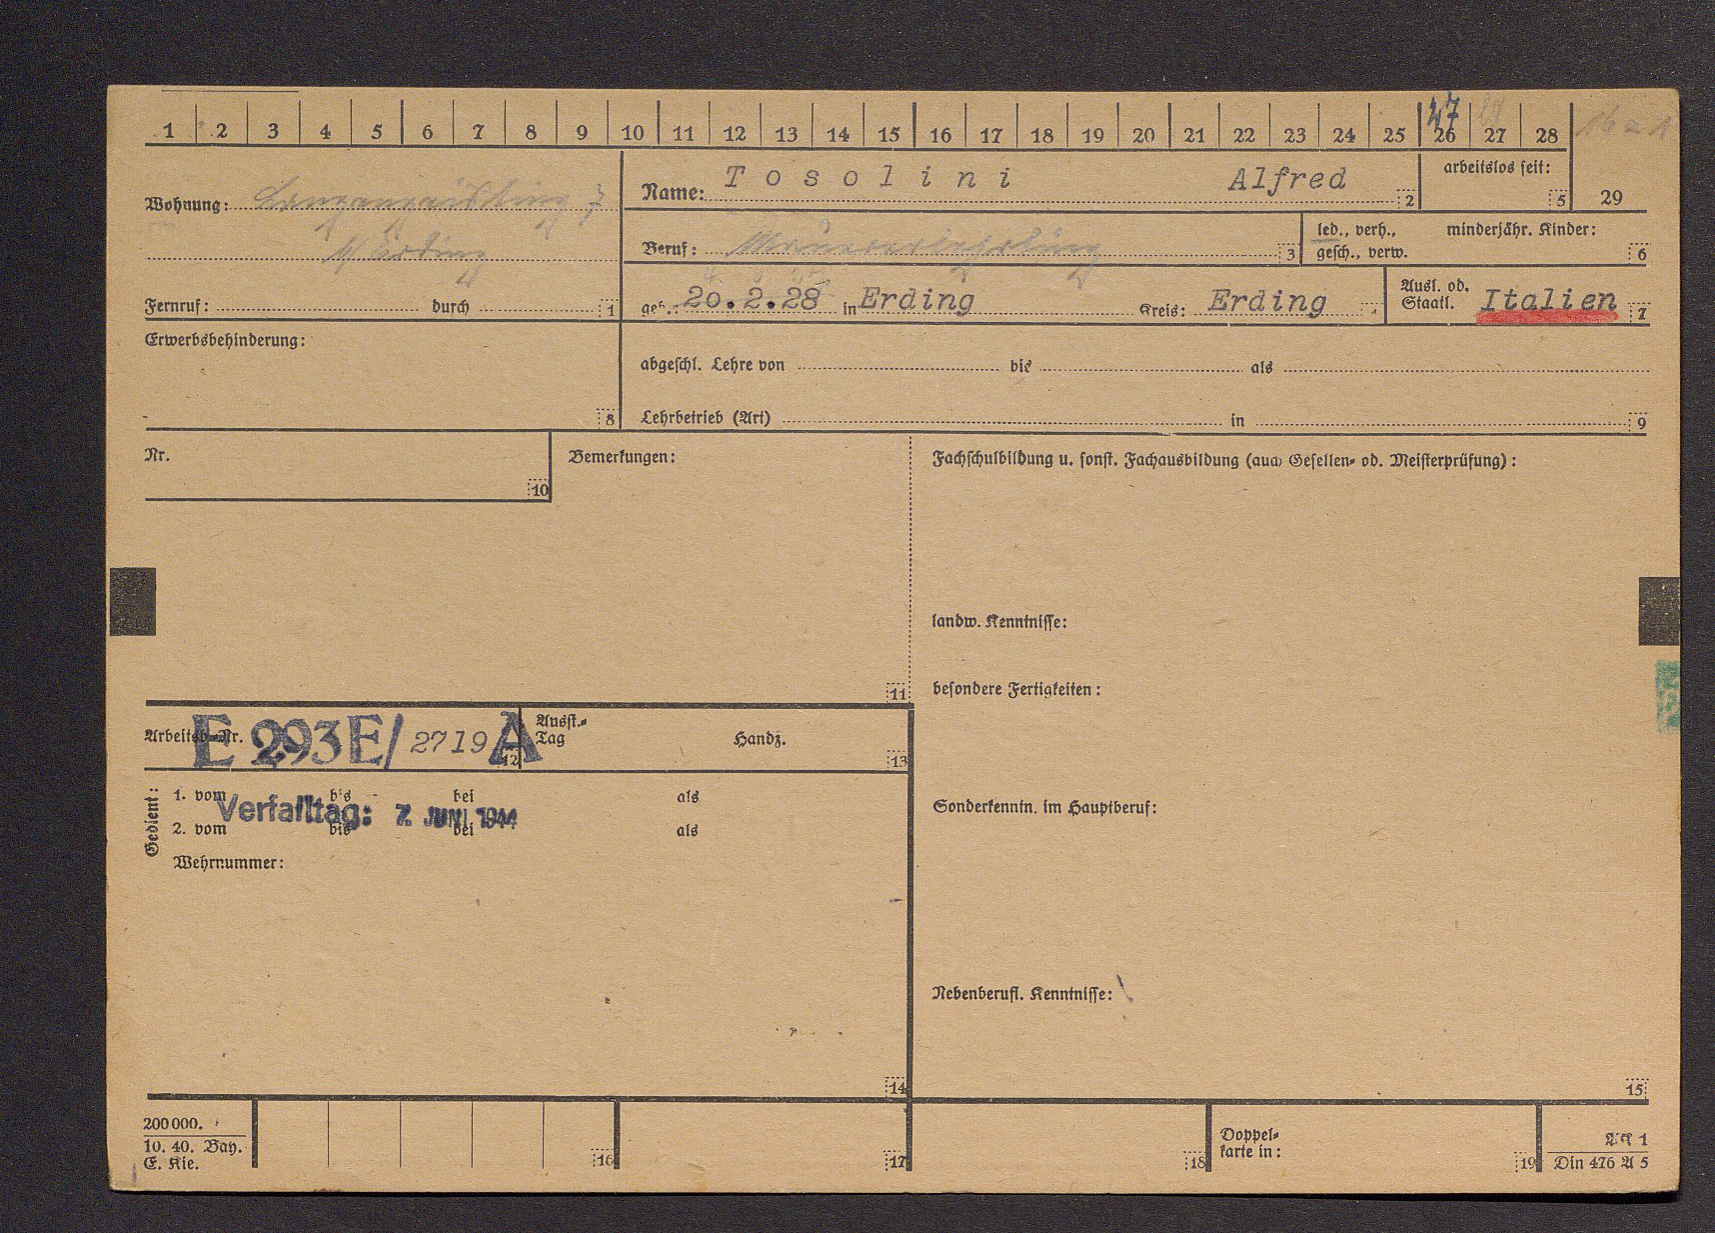 1 2 3 4 5 6 7 8 9 10 11 12 13 14 15 16 17 18 19 20 21 22 23 24 25 26 27 28
47
Wohnung:
Name: Tosolini Alfred 2
arbeitslos seit: 5 29
Beruf: Maurerlehrling 3
led., verh., minderjähr. Kinder:
gesch., verw. 6
Erding
Fernruf: durch 1
geb.: 20.2.28 in Erding Kreis: Erding
Ausl. od.
Staatl. Italien 7
Erwerbsbehinderung:
8
abgeschl. Lehre von bis als
Lehrbetrieb (Art) in 9
Nr.
10
Bemerkungen:
11
Fachschulbildung u. sonst. Fachausbildung (auch Gesellen- od. Meisterprüfung):
landw. Kenntnisse:
besondere Fertigkeiten:
Arbeitsb.-Nr. E 293E/ 2719 A 12
Ausst.-
Tag Handz. 13
Gedient:
1. vom bis bei als
Verfalltag: 7. JUNI 1944
2. vom bis bei als
Wehrnummer:
14
Sonderkenntn. im Hauptberuf:
Nebenberufl. Kenntnisse:
15
200000.
10. 40. Bay.
E. Kie.
16
17
18
Doppel-
karte in:
19
AK 1
Din 476 A 5